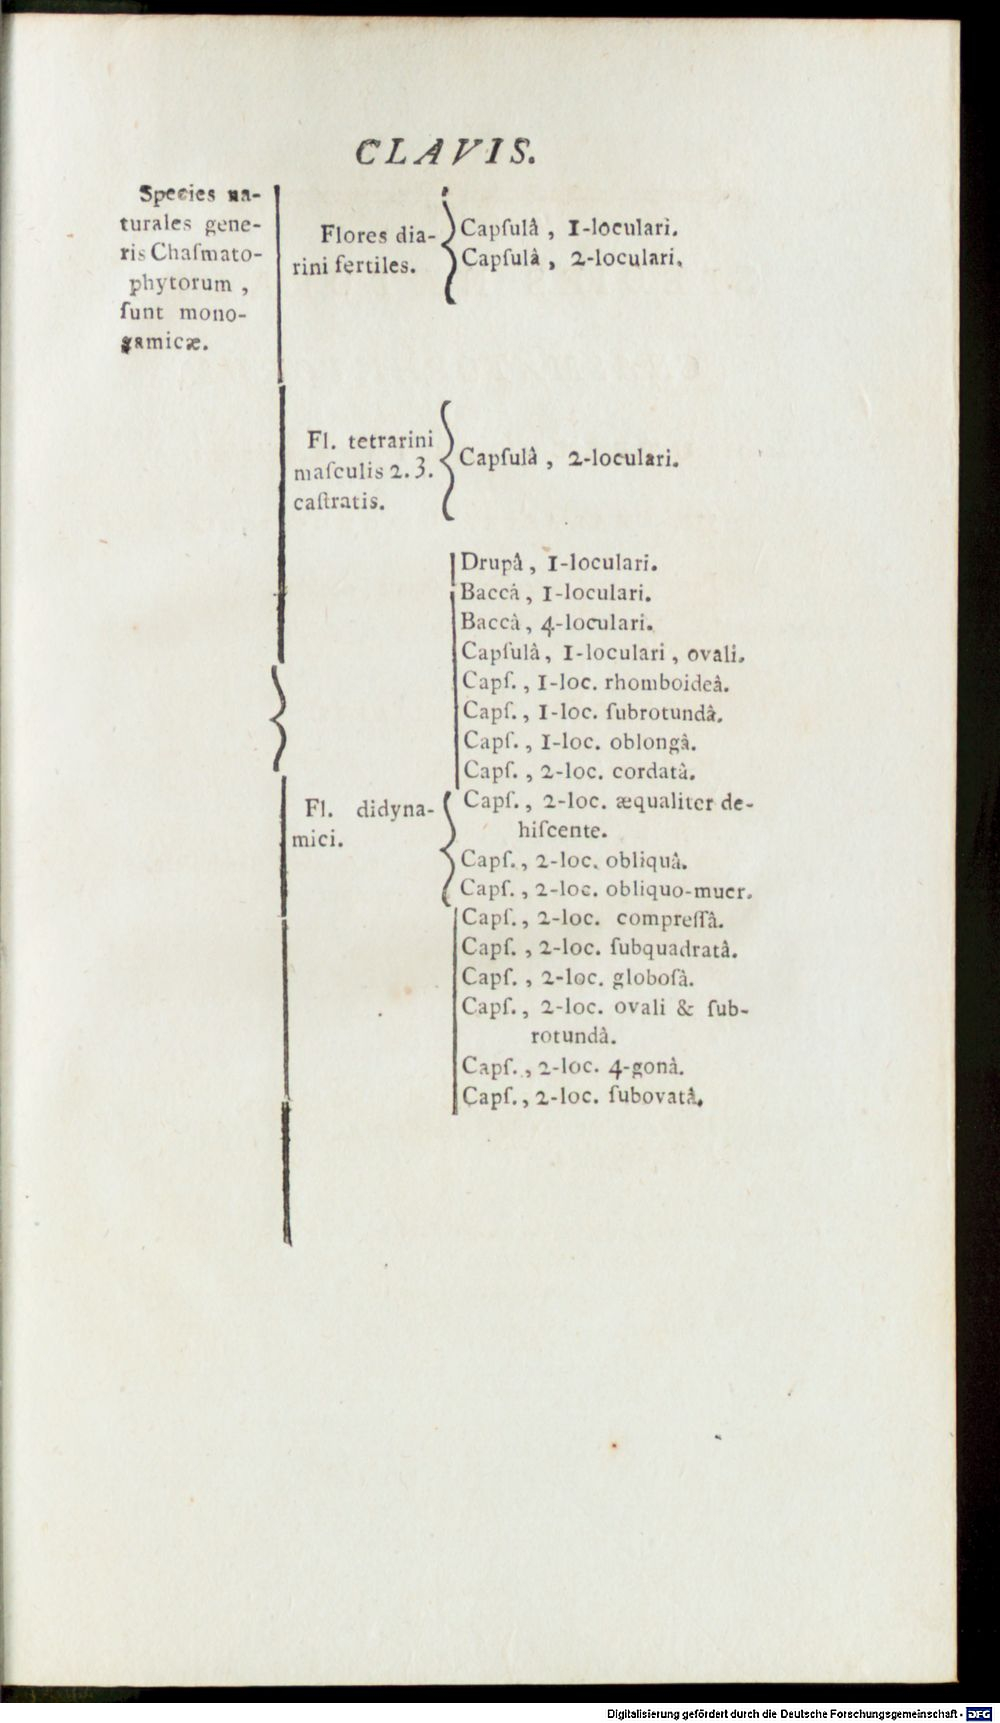 CLAVIS.
Species na-
turales gene-
ris Chaſmato-
phytorum,
ſunt mono-
gamicæ.
Flores dia-
rini fertiles.
Capſulâ, 1-loculari.
Capſulâ, 2-loculari.
Fl. tetrarini
maſculis 2. 3.
caſtratis.
Capſulâ, 2-loculari.
Fl. didyna-
mici.
Drupâ, 1-loculari.
Baccâ, 1-loculari.
Baccâ, 4-loculari.
Capſulâ, 1-loculari, ovali.
Capſ., 1-loc. rhomboideâ.
Capſ., 1-loc. ſubrotundâ.
Capſ., 1-loc. oblongâ.
Capſ., 2-loc. cordatâ.
Capſ., 2-loc. æqualiter de-
hiſcente.
Capſ., 2-loc. obliquâ.
Capſ., 2-loc. obliquo-mucr.
Capſ., 2-loc. compreſſâ.
Capſ., 2-loc. ſubquadratâ.
Capſ., 2-loc. globoſâ.
Capſ., 2-loc. ovali & ſub-
rotundâ.
Capſ., 2-loc. 4-gonâ.
Capſ., 2-loc. ſubovatâ.
Digitalisierung gefördert durch die Deutsche Forschungsgemeinschaft - DFG